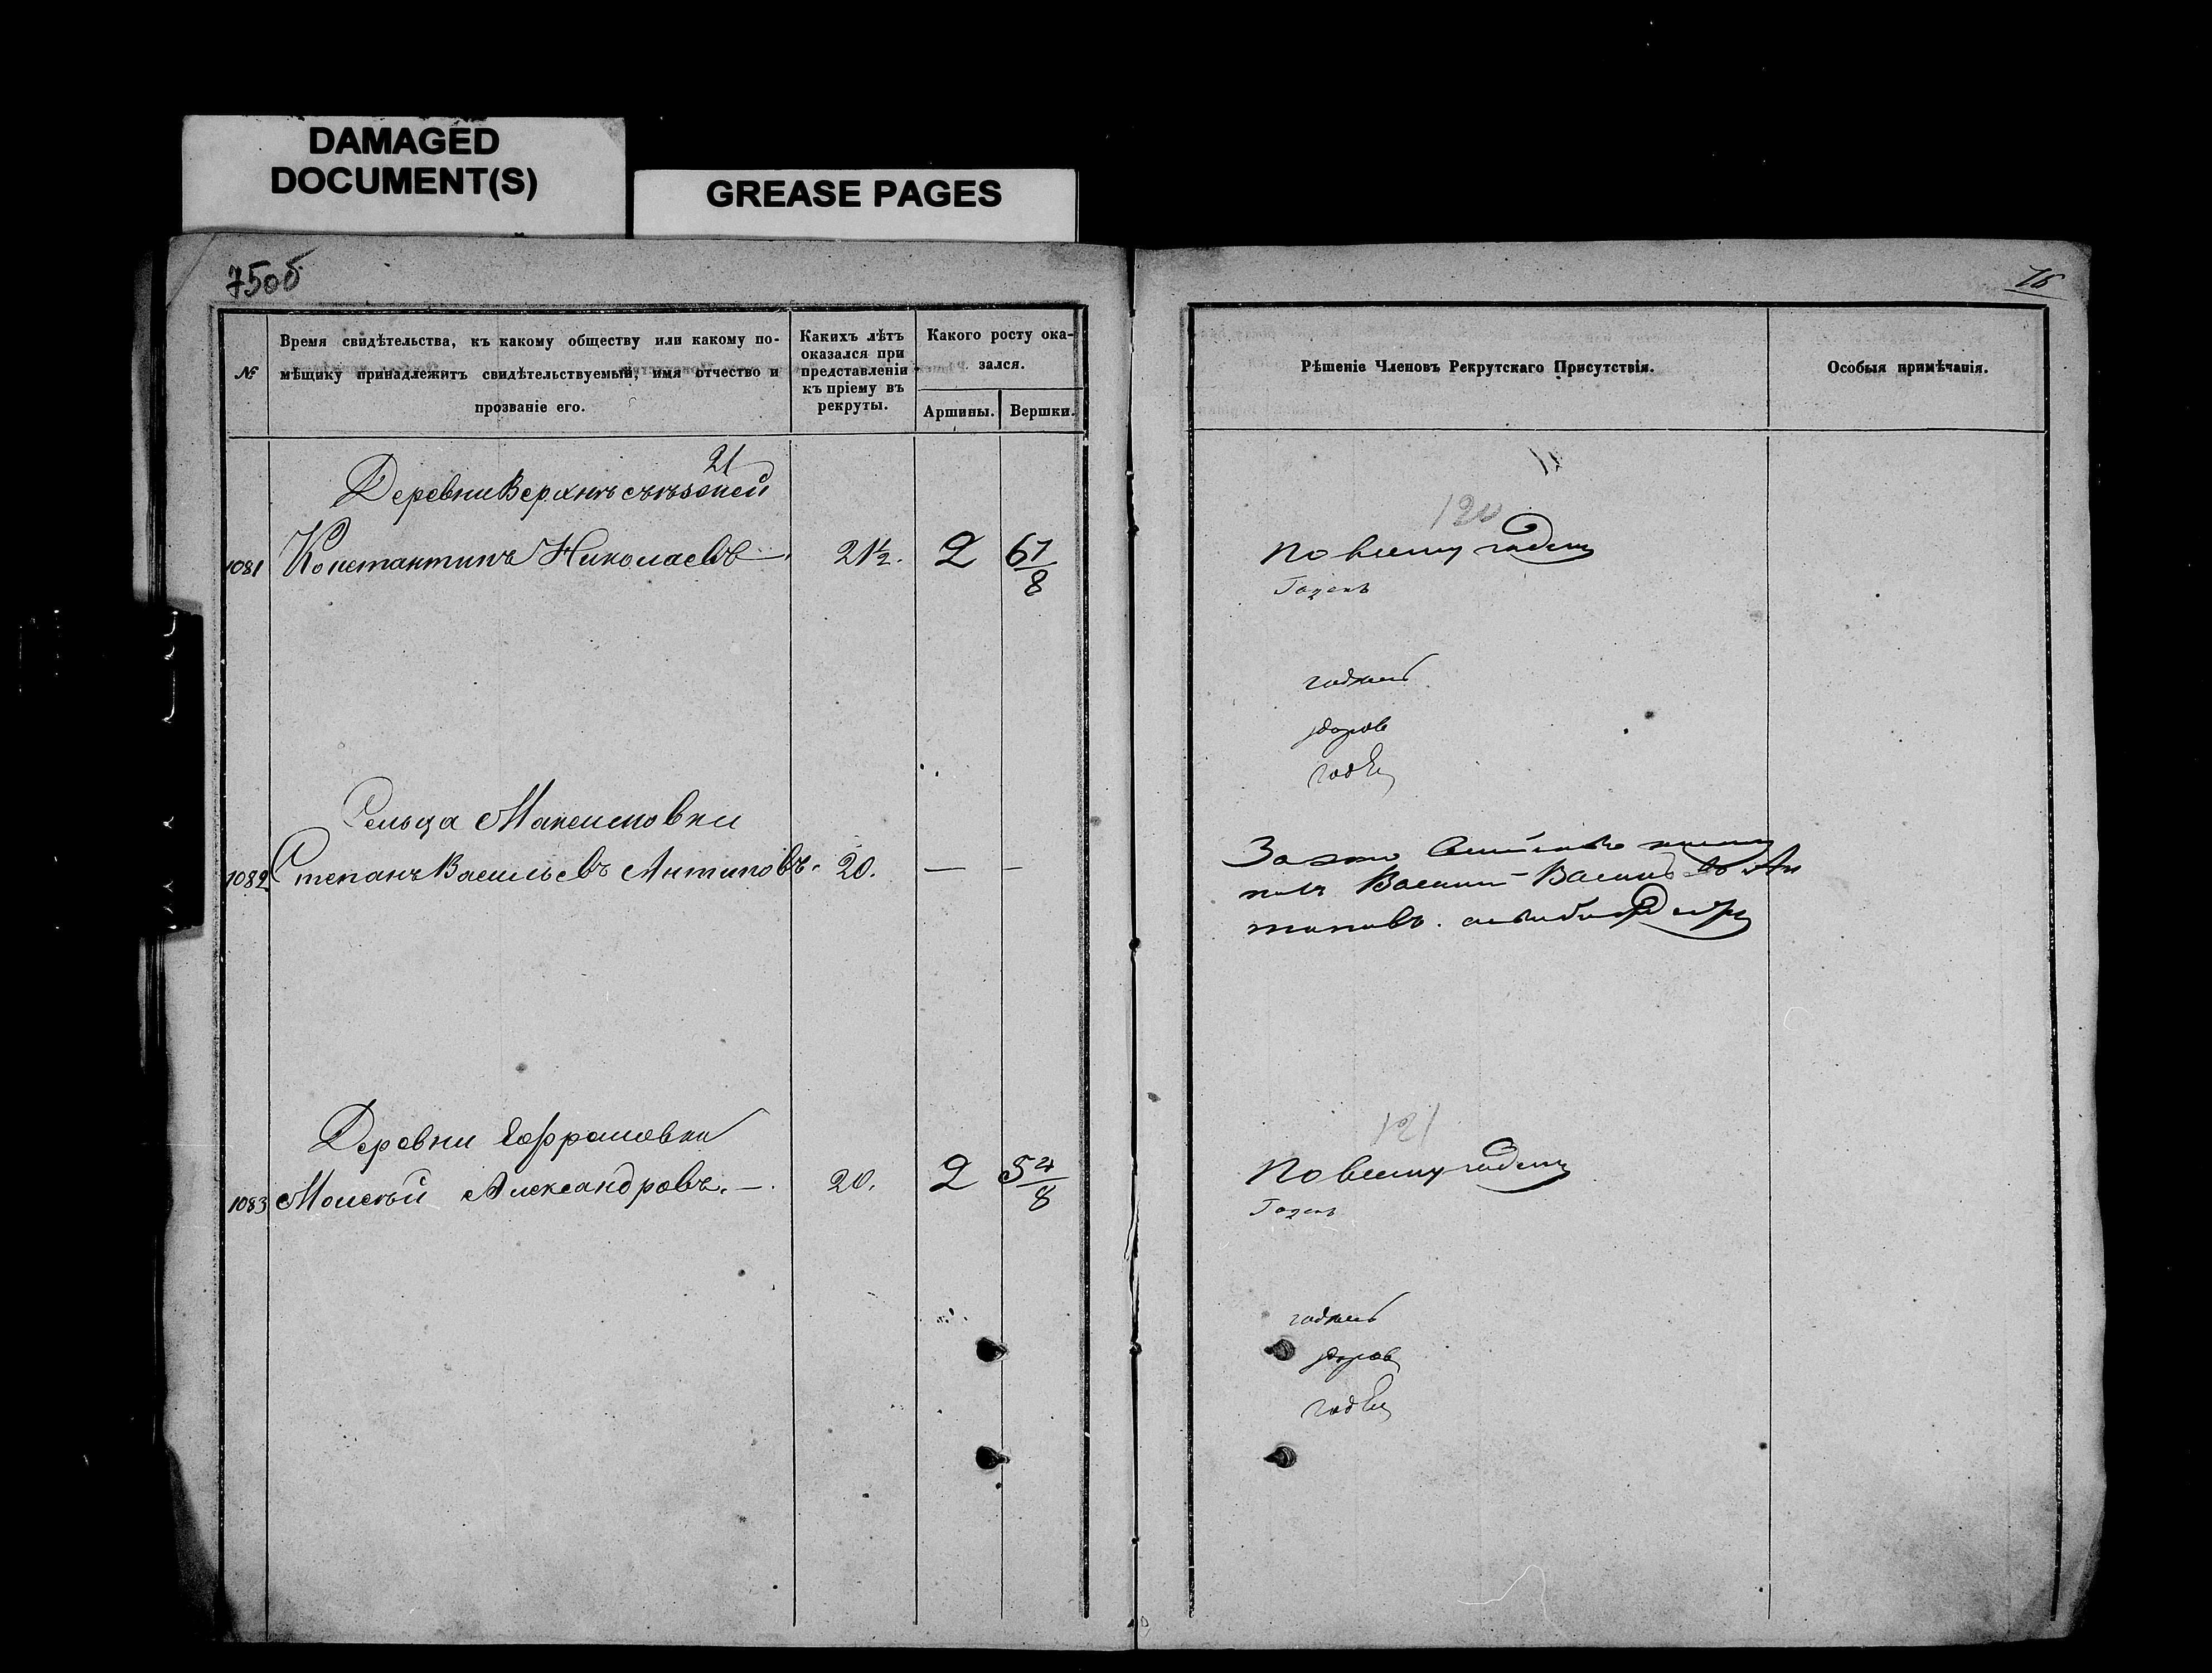 DAMAGED
DOCUMENT(S)
GREASE PAGES
75об
76
№
Время свидѣтельства, къ какому обществу или какому по-
мѣщику принадлежитъ свидѣтельствуемый, имя отчество и
прозваніе его.
Какихъ лѣтъ
оказался при
представленіи
къ пріему въ
рекруты.
Какого росту ока-
зался.
Аршины.
Вершки.
Рѣшеніе Членовъ Рекрутскаго Присутствія.
Особыя примѣчанія.
21
Деревни
120
1081 Константинъ Николаевъ 21½. 2 6 7/8
По всему годенъ
Годенъ
годенъ
здоровъ
годен
Сельца Максимовки
1082 Степанъ Васильевъ Антиповъ. 20. — —
За
Василій Васильевъ Ан
типовъ.
121
Деревни Ефремовки
1083 Моисѣй Александровъ. —. 20. 2 5 4/8
По всему годенъ
Годенъ
годенъ
здоров
годен